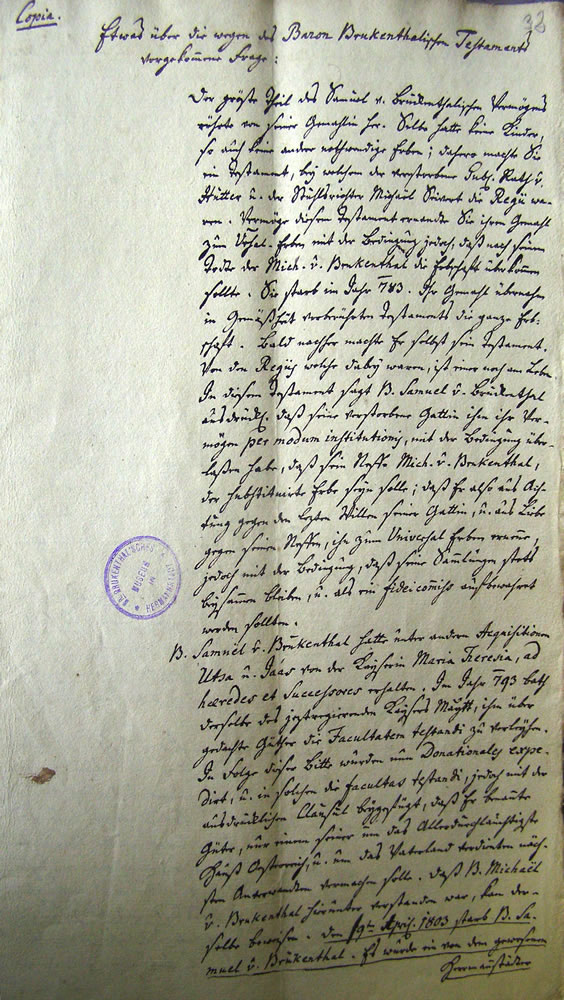 Copia.
38
Etwas über die wegen des Baron Brukenthalischen Testaments
vorgekommene Frage:
Der gröste Theil des Samuel v. Brükenthalischen Vermögens
rührte von seiner Gemahlin her. Selbe hatte keine Kinder,
so auch keine andere nothwendige Erben; dahero machte Sie
ein Testament, bey welchem der verstorbene Gub. Rath v.
Hutter u. der Stuhlsrichter Michaël Seivert die Regii wa-
ren. Vermöge diesem Testament ernannte Sie ihren Gemahl
zum Erben mit der Bedingung jedoch, daß nach seinem
Tode der Mich. v. Brukenthal die Erbschaft überkommen
sollte. Sie starb im Jahr 783. Ihr Gemahl übernahm
in Gemäßheit vorberührten Testaments die ganze Erb-
schaft. Bald nachher machte Er selbst sein Testament.
Von den Regiis welche dabey waren, ist einer noch am Leben.
In diesem Testament sagt B. Samuel v. Brükenthal
ausdrückl. daß seine verstorbene Gattin ihm ihr Ver-
mögen per modum institutionis, mit der Bedingung über-
laßen habe, daß sein Neffe Mich. v. Brukenthal,
der substituirte Erbe seyn solle; daß Er also aus Ach-
tung gegen den letzten Willen seiner Gattin, u. aus Liebe
gegen seinen Neffen, ihn zum Universal Erben ernenne,
jedoch mit der Bedingung, daß seine Sammlungen stets
beysammen bleiben, u. als ein fideicomiss aufbewahret
werden sollten.
B. Samuël v. Brukenthal hatte unter andern Acquisitionen
Utsa u. Sáás von der Kayserin Maria Theresia, ad
hæredes et Successores erhalten. Im Jahr 793 bath
derselbe des jeztregierenden Kaysers Maytt, ihm über
gedachte Güther die Facultatem testandi zu verleyhen.
In Folge dieser Bitte wurden neue Donationales expe-
dirt, u. in solchen die facultas testandi, jedoch mit der
ausdrüklichen Clausul beygefügt, daß Er benante
Güter, nur einem seiner um das Allerdurchlauchtigste
Hauß Oesterreich, u. um das Vaterland verdienten näch-
sten Anverwandten vermachen solle. Daß B. Michaël
v. Brukenthal hierunter verstanden war, kan der-
selbe beweisen. Den 9ten April. 1803 starb B. Sa-
muel v. Brükenthal. Es wurde ein von dem gewesenen
Hermanstädter
MUSEUM